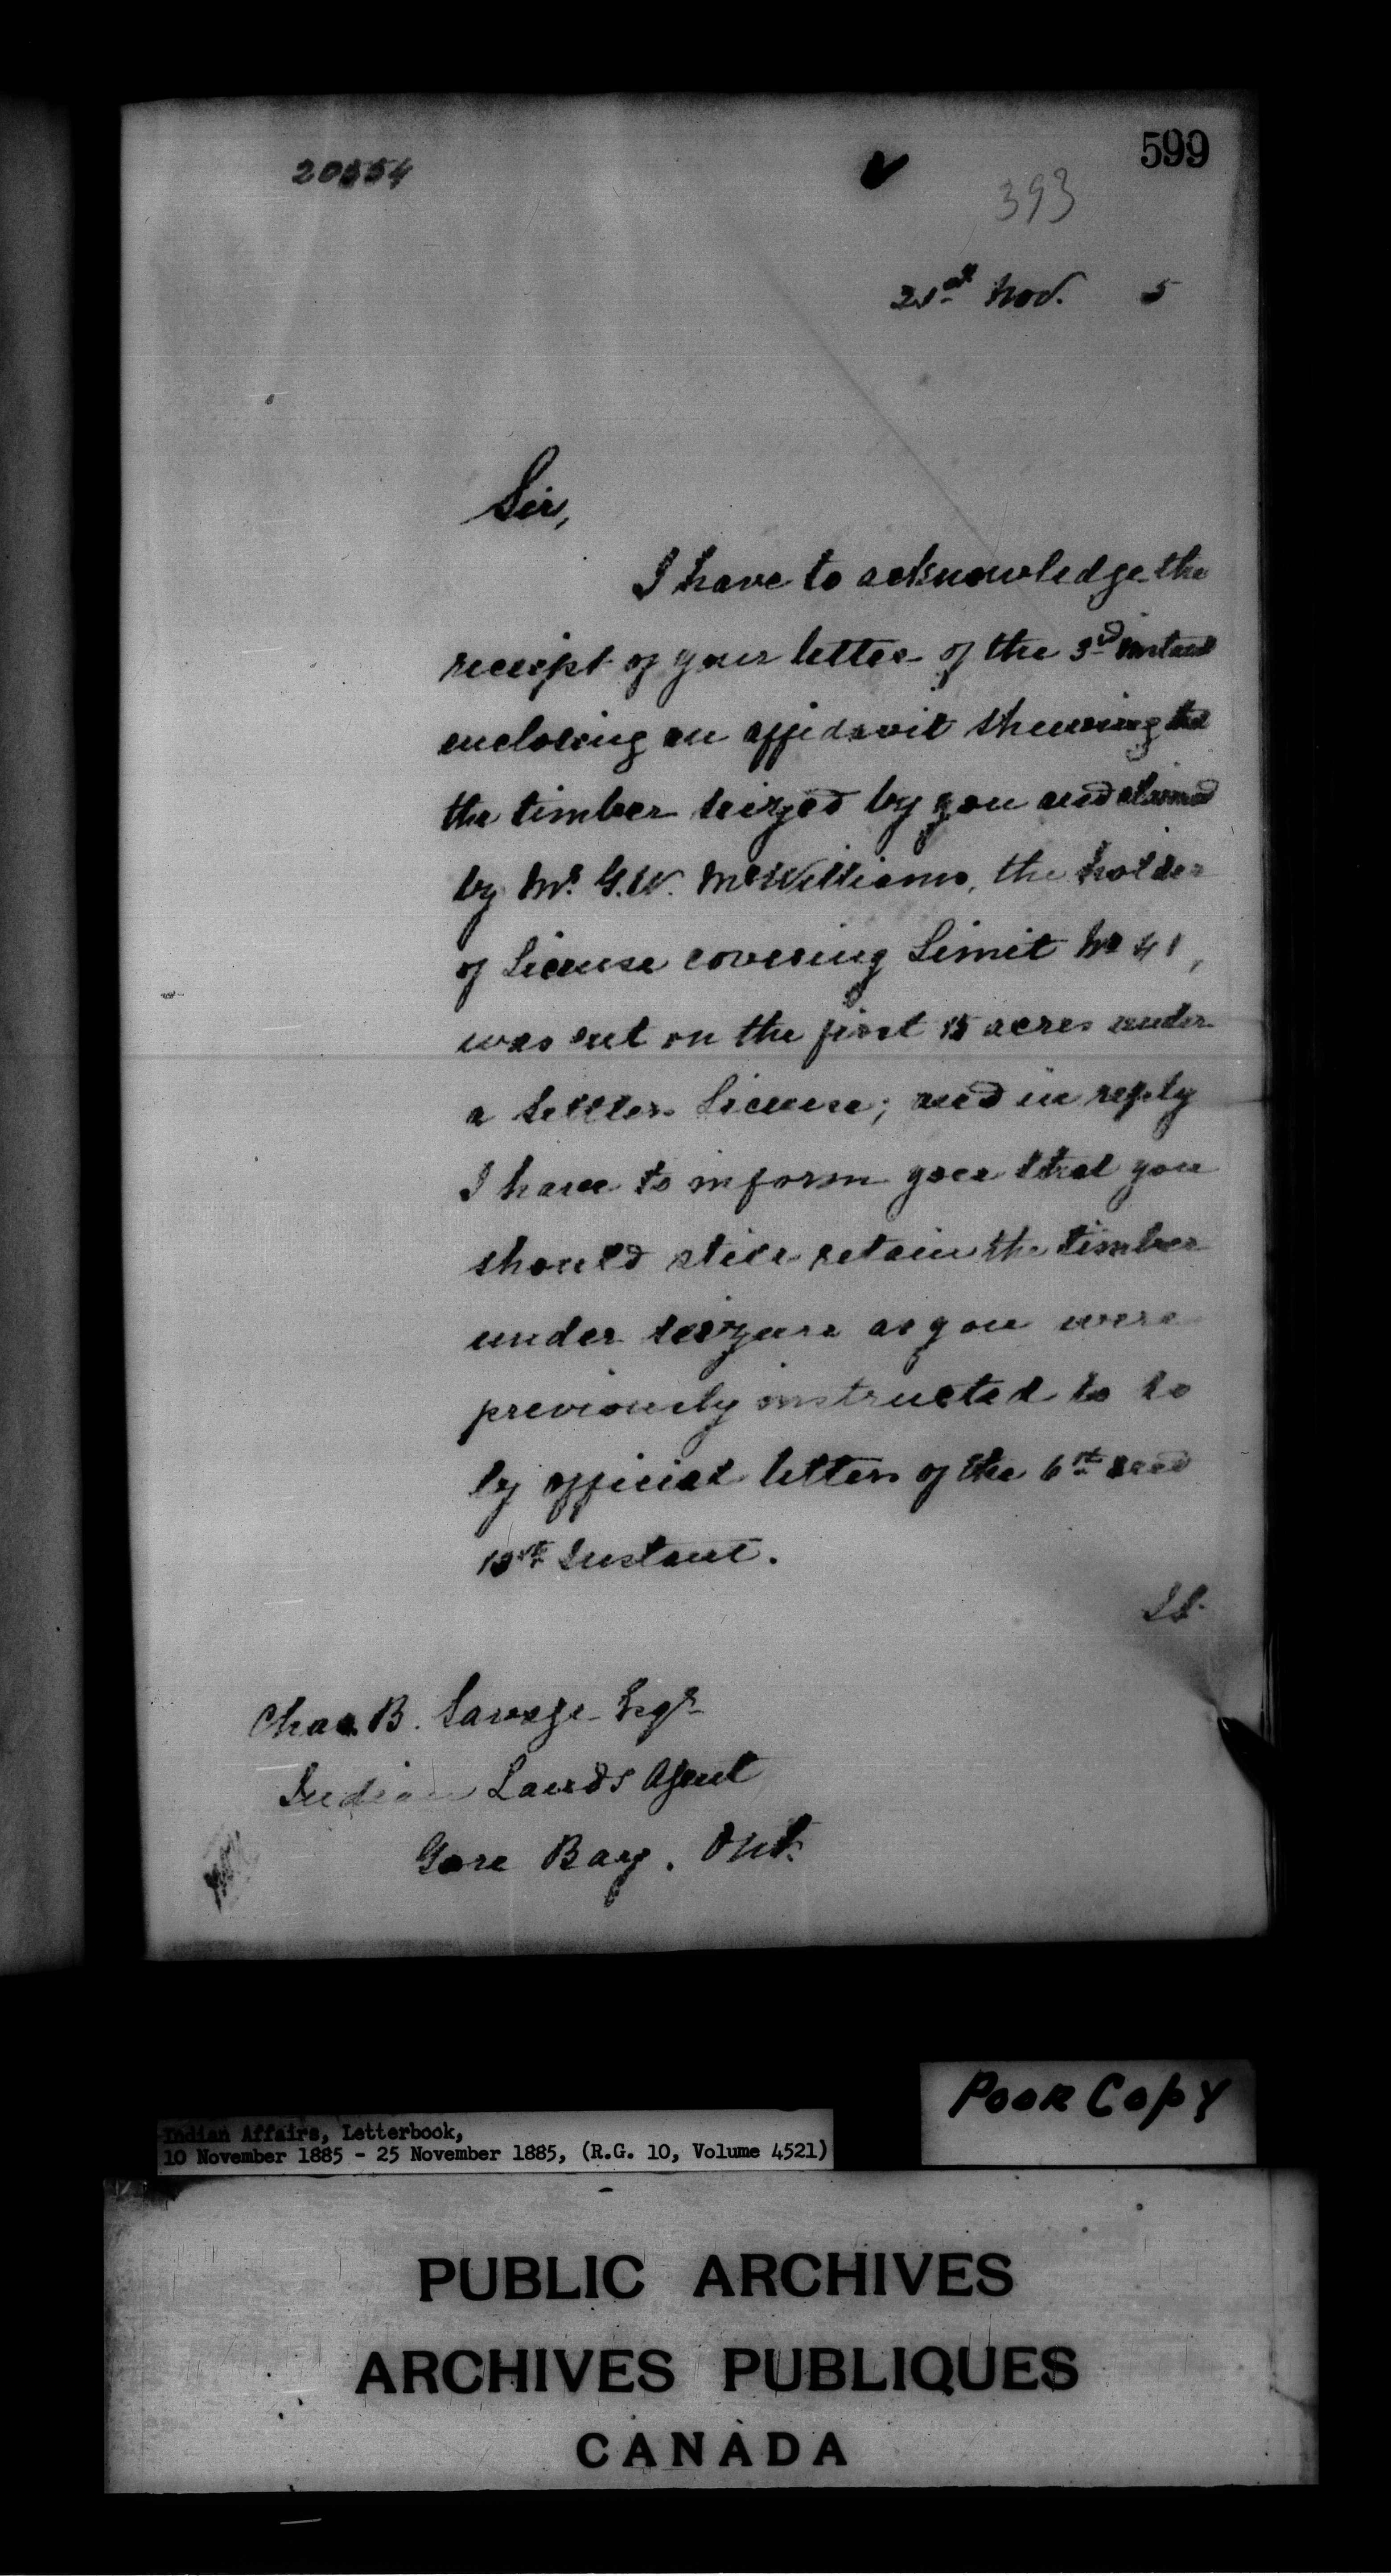 599
20554
393
21st Nov. 5
Sir,
I have to acknowledge the
receipt of your letter of the 3rd instant
enclosing an affidavit shewing that
the timber seized by you and claimed
by Mr. G.W. McWilliams, the holder
of License covering Limit No 41,
was cut on the first 15 acres under
a Settlers License; and in reply
I have to inform you that you
should still retain the timber
under seizure as you were
previously instructed to do
by official letters of the 6th and
instant.
Chas. B. Savage Esqr
Indian Lands Agent
Gore Bay. Ont.
Poor Copy
Indian Affairs, Letterbook,
10 November 1885 - 25 November 1885, (R.G. 10, Volume 4521)
PUBLIC ARCHIVES
ARCHIVES PUBLIQUES
CANADA